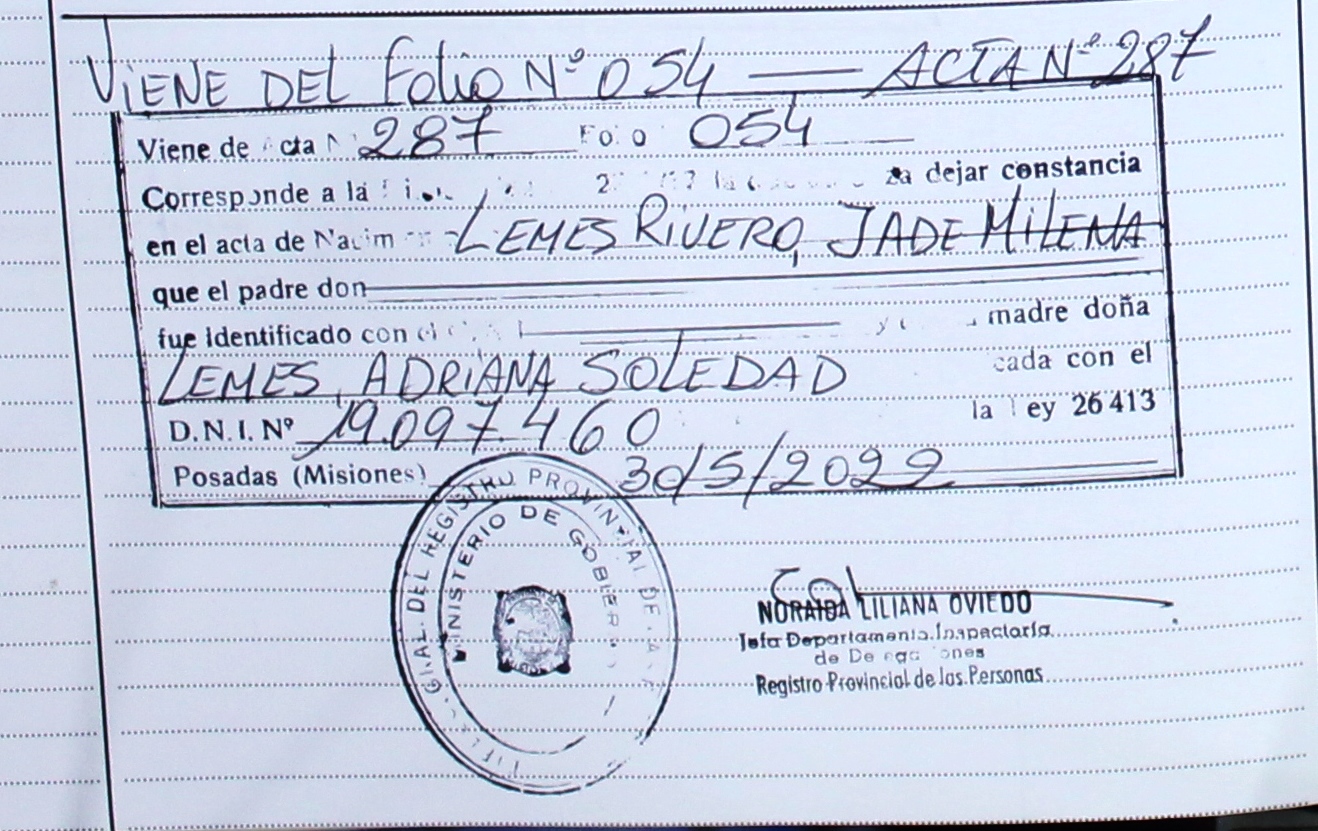 VIENE DEL Folio Nº 054 — ACTA Nº 287
Viene de cta N 287 Fo o 054
Corresponde a la dejar constancia
en el acta de Nacim LEMES RIVERO, JADE MILENA
que el padre don
fue identificado con el madre doña
LEMES, ADRIANA SOLEDAD cada con el
D.N.I. Nº 19.097.460 la ley 26413
Posadas (Misiones) 30/5/2022
GRAL. DEL REGISTRO PROVINCIAL DE
MINISTERIO DE GOBIERNO
NORAIDA LILIANA OVIEDO
Jefa Departamento Inspectoría
de De ega iones
Registro Provincial de las Personas